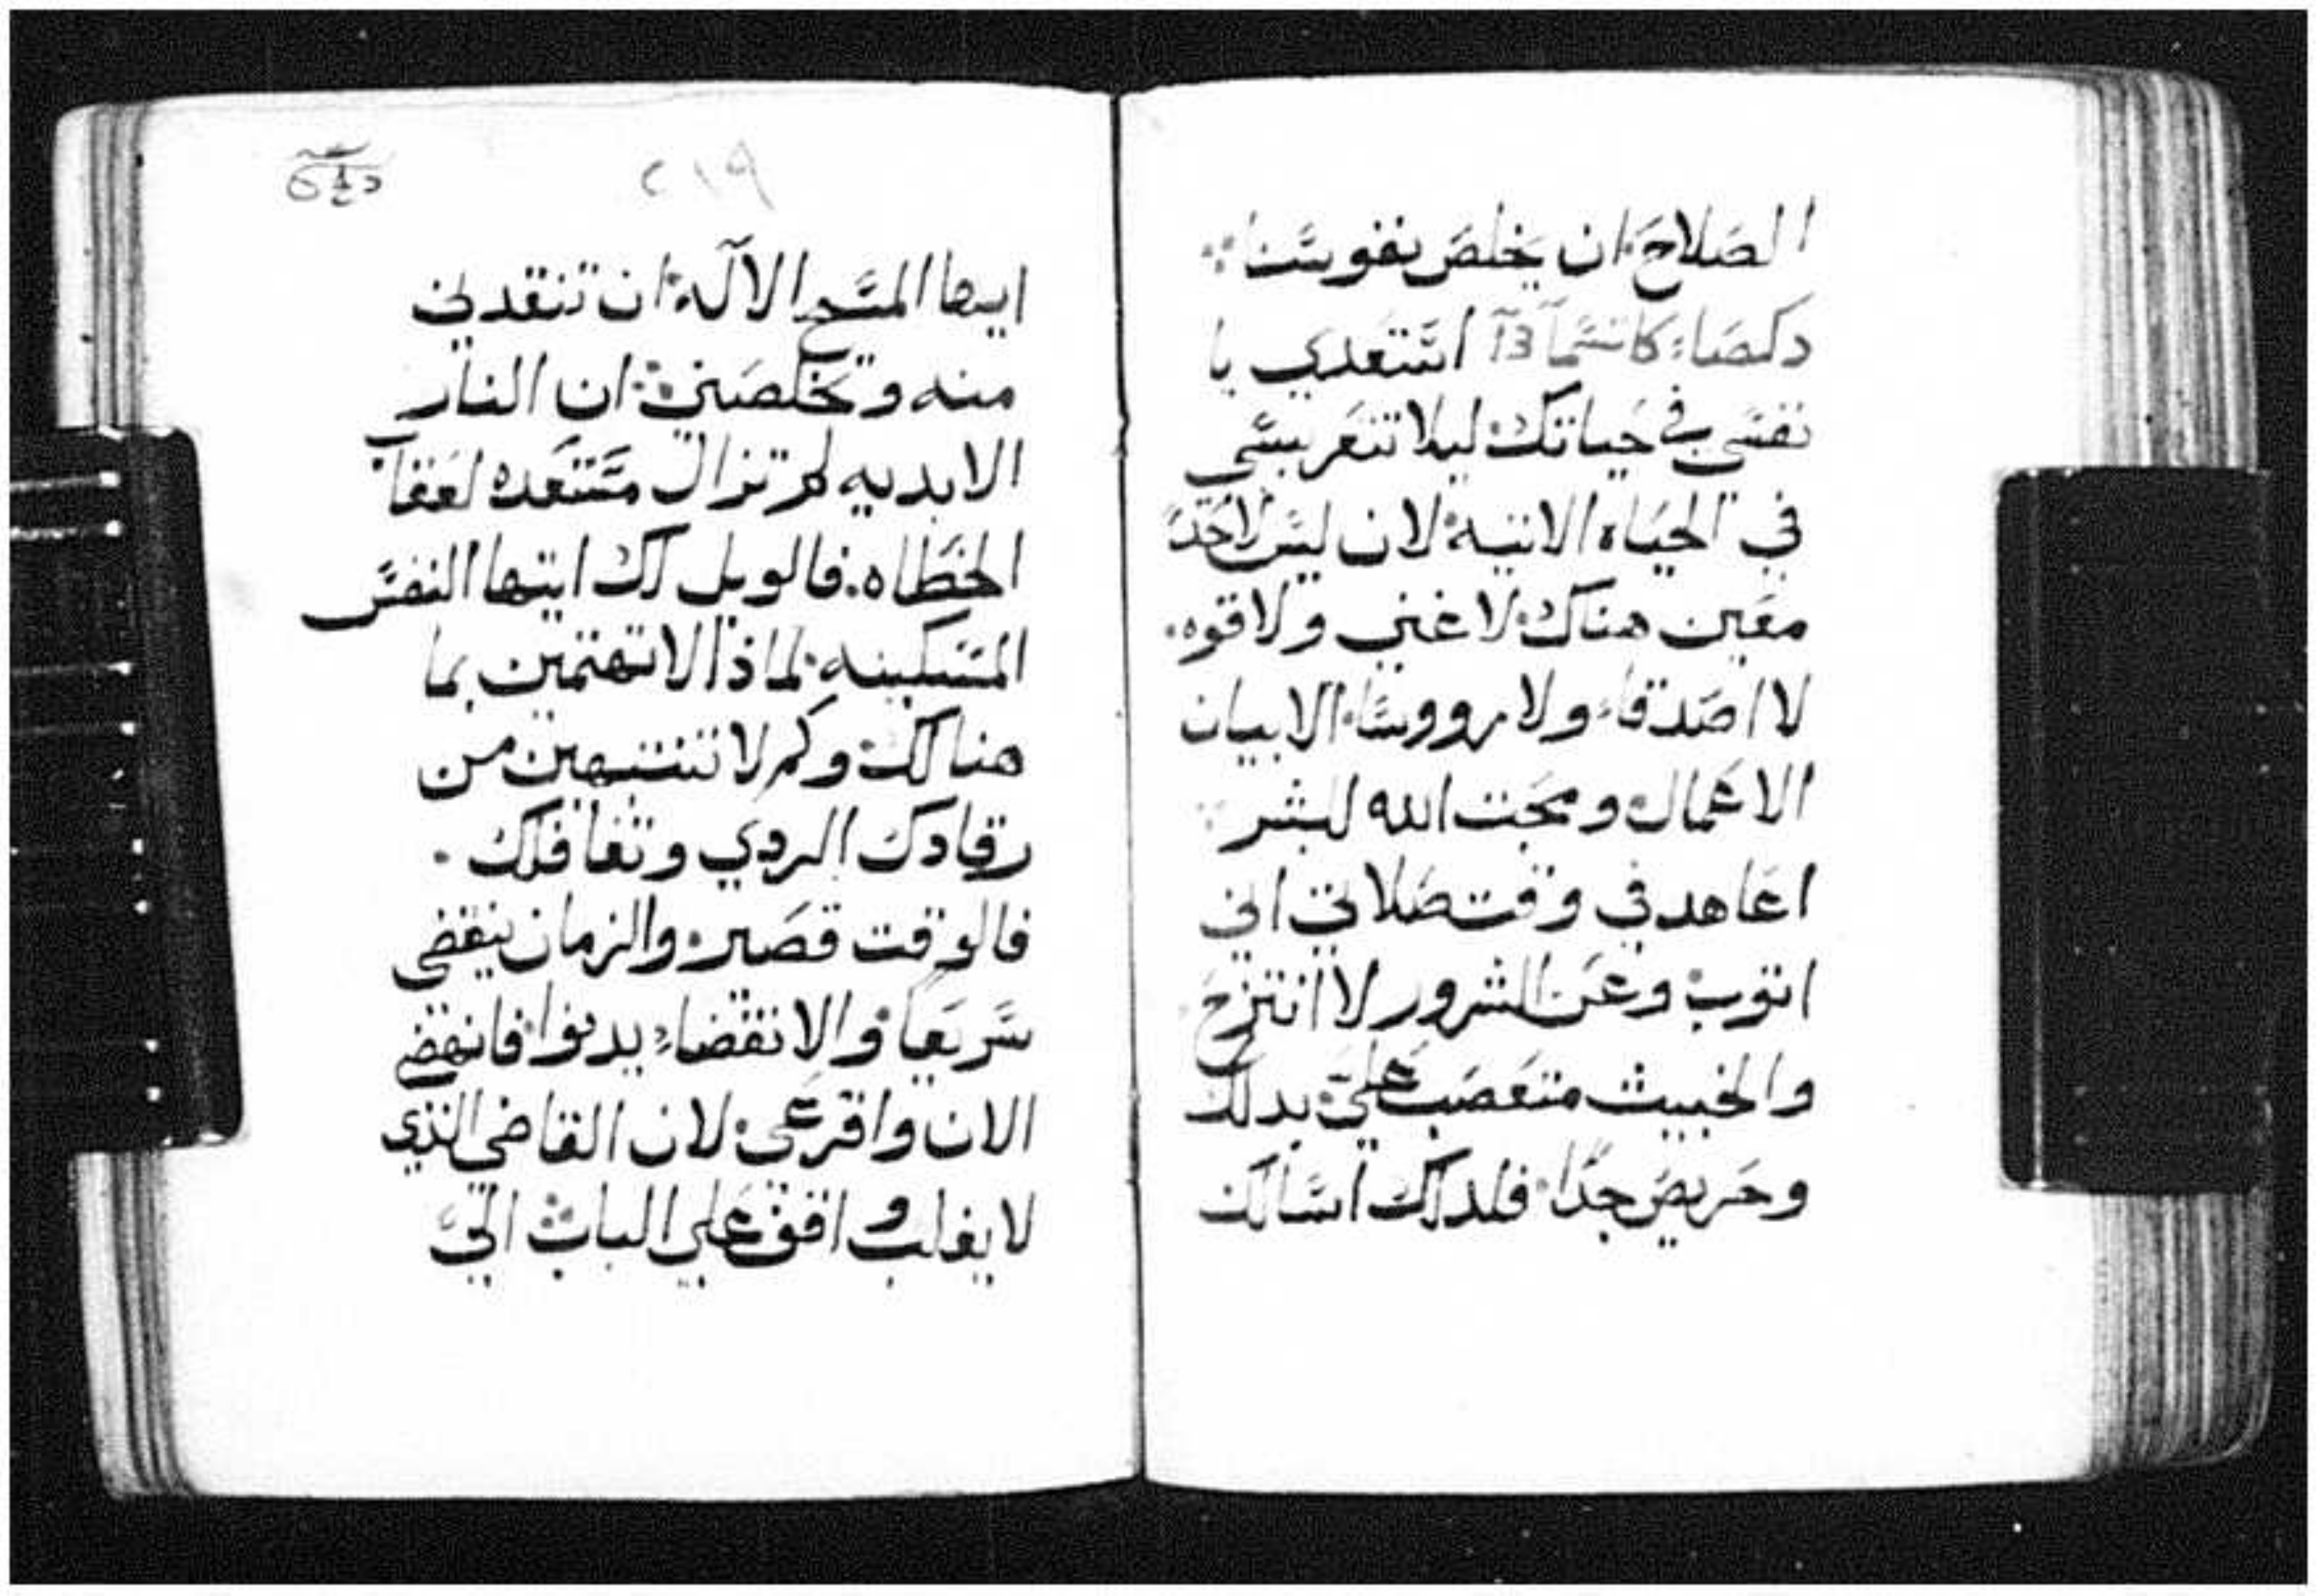 الصلاح ان يخلص نفوسنا
دكصا: كانيسما آ3 استعدي يا
نفسي في حياتك ليلا تتعربسي
في الحياه الاتيه لان ليس لاحدا
معين هناك لا غني ولا قوه.
لا اصدقاء ولا رووسا الا بيان
الاعمال ومحبت الله للبشر
اعاهد في وقت صلاتي اني
اتوب وعن الشرور لا انتزح
والخبيث متعصب علي بدلك
وحريص جدا فلدلك اسالك
٢١٩
ايها المسيح الاله ان تنقدني
منه وتخلصني ان النار
الابديه لم تزال مستعده لعقاب
الخطاه. فالويل لك ايتها النفس
المسكينه لماذا لا تهتمين بما
هنالك وكم لا تنتبهين من
رقادك الردي وتغافلك.
فالوقت قصير والزمان ينقضي
سريعا والانقضاء يدنوا فانهضي
الان واقرعي لان القاضي الذي
لا يغلب واقف علي الباب الي